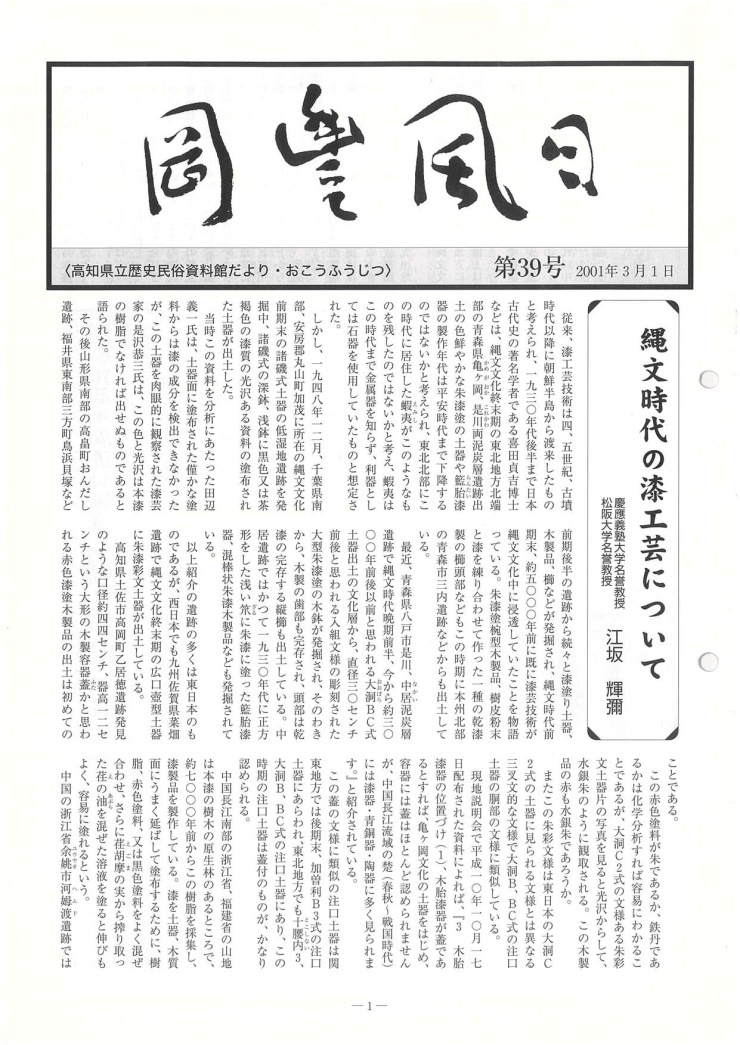 岡豊風日
〈高知県立歴史民俗資料館だより・おこうふうじつ〉
第39号 2001年3月1日
縄文時代の漆工芸について
慶應義塾大学名誉教授
松阪大学名誉教授
江坂 輝彌
従来、漆工芸技術は四、五世紀、古墳
時代以降に朝鮮半島から渡来したもの
と考えられ、一九三〇年代後半まで日本
古代史の著名学者である喜田貞吉博士
などは、縄文文化終末期の東北地方北端
部の青森県亀ヶ岡、是川両泥炭層遺跡出
土の色鮮やかな朱漆塗の土器や籃胎漆
器の製作年代は平安時代まで下降する
のではないかと考えられ、東北北部にこ
の時代に居住した蝦夷がこのようなも
のを残したのではないかと考え、蝦夷は
この時代まで金属器を知らず、利器とし
ては石器を使用していたものと想定さ
れた。
しかし、一九四八年一二月、千葉県南
部、安房郡丸山町加茂に所在の縄文文化
前期末の諸磯式土器の低湿地遺跡を発
掘中、諸磯式の深鉢、浅鉢に黒色又は茶
褐色の漆質の光沢ある資料の塗布され
た土器が出土した。
当時この資料を分析にあたった田辺
義一氏は、土器面に塗布された僅かな塗
料からは漆の成分を検出できなかった
が、この土器を肉眼的に観察された漆芸
家の是沢恭三氏は、この色と光沢は本漆
の樹脂でなければ出せぬものであると
語られた。
その後山形県南部の高畠町おんだし
遺跡、福井県東南部三方町鳥浜貝塚など
前期後半の遺跡から続々と漆塗り土器、
木製品、櫛などが発掘され、縄文時代前
期末、約五〇〇〇年前に既に漆芸技術が
縄文文化中に浸透していたことを物語
っている。朱漆塗椀型木製品、樹皮粉末
と漆を練り合わせて作った一種の乾漆
製の櫛頭部などもこの時期に本州北部
の青森市三内遺跡などからも出土して
いる。
最近、青森県八戸市是川、中居泥炭層
遺跡で縄文時代晩期前半、今から約三〇
〇〇年前後以前と思われる大洞BC式
土器出土の文化層から、直径三〇センチ
前後と思われる入組文様の彫刻された
大型朱漆塗の木鉢が発掘され、そのわき
から、木製の歯部も完存され、頭部は乾
漆の完存する縦櫛も出土している。中
居遺跡ではかつて一九三〇年代に正方
形をした浅い笊に朱漆に塗った籃胎漆
器、混棒状朱漆木製品なども発掘されて
いる。
以上紹介の遺跡の多くは東日本のも
のであるが、西日本でも九州佐賀県菜畑
遺跡で縄文文化終末期の広口壺型土器
に朱漆彩文土器が出土している。
高知県土佐市高岡町乙居徳遺跡発見
のような口径約四四センチ、器高一二セ
ンチという大形の木製容器蓋かと思わ
れる赤色漆塗木製品の出土は初めての
ことである。
この赤色塗料が朱であるか、鉄丹であ
るかは化学分析すれば容易にわかるこ
とであるが、大洞C2式の文様ある朱彩
文土器片の写真を見ると光沢からして、
水銀朱のように観取される。この木製
品の赤も水銀朱であろうか。
またこの朱彩文様は東日本の大洞C
2式の土器に見られる文様とは異なる
三叉文的な文様で大洞B、BC式の注口
土器の胴部の文様に類似している。
現地説明会で平成一〇年一〇月一七
日配布された資料によれば、『3 木胎
漆器の位置づけ(1)、木胎漆器が蓋であ
るとすれば、亀ヶ岡文化の土器をはじめ、
容器には蓋はほとんど認められません
が、中国長江流域の楚(春秋~戦国時代)
には漆器・青銅器・陶器に多く見られま
す。』と紹介されている。
この蓋の文様に類似の注口土器は関
東地方では後期末、加曽利B3式の注口
土器にあらわれ、東北地方でも十腰内3、
大洞B、BC式の注口土器にあり、この
時期の注口土器は蓋付のものが、かなり
認められる。
中国長江南部の浙江省、福建省の山地
は本漆の樹木の原生林のあるところで、
約七〇〇〇年前からこの樹脂を採集し、
漆製品を製作している。漆を土器、木質
面にうまく延ばして塗布するために、樹
脂、赤色塗料、又は黒色塗料をよく混ぜ
合わせ、さらに荏胡麻の実から搾り取っ
た荏の油を混ぜた溶液を塗ると伸びも
よく、容易に塗れるという。
中国の浙江省余姚市河姆渡遺跡では
—1—